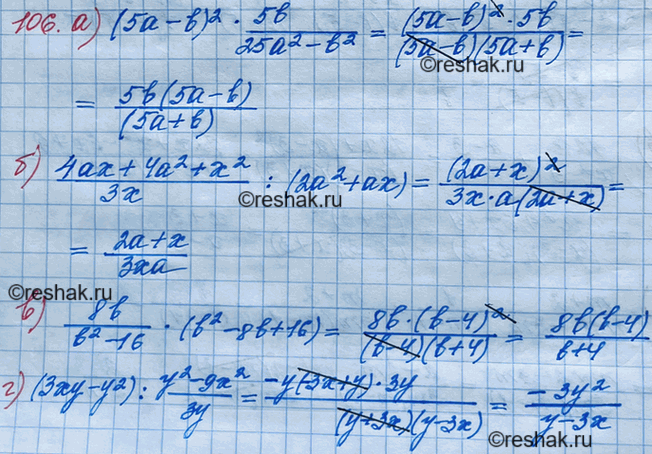 106. а) (5a-b)² · 5b/(25a²-b²) = (5a-b)²·5b/((5a-b)(5a+b)) =
©reshak.ru
= 5b(5a-b)/(5a+b)
б) (4ax+4a²+x²)/3x : (2a²+ax) = (2a+x)²/(3x·a(2a+x)) =
©reshak.ru ©reshak.ru
= (2a+x)/3xa
©reshak.ru
в) 8b/(b²-16) · (b²-8b+16) = 8b·(b-4)²/((b-4)(b+4)) = 8b(b-4)/(b+4)
г) (3xy-y²) : (y²-9x²)/3y = -y(-3x+y)·3y/((y+3x)(y-3x)) = -3y²/(y-3x)
©reshak.ru